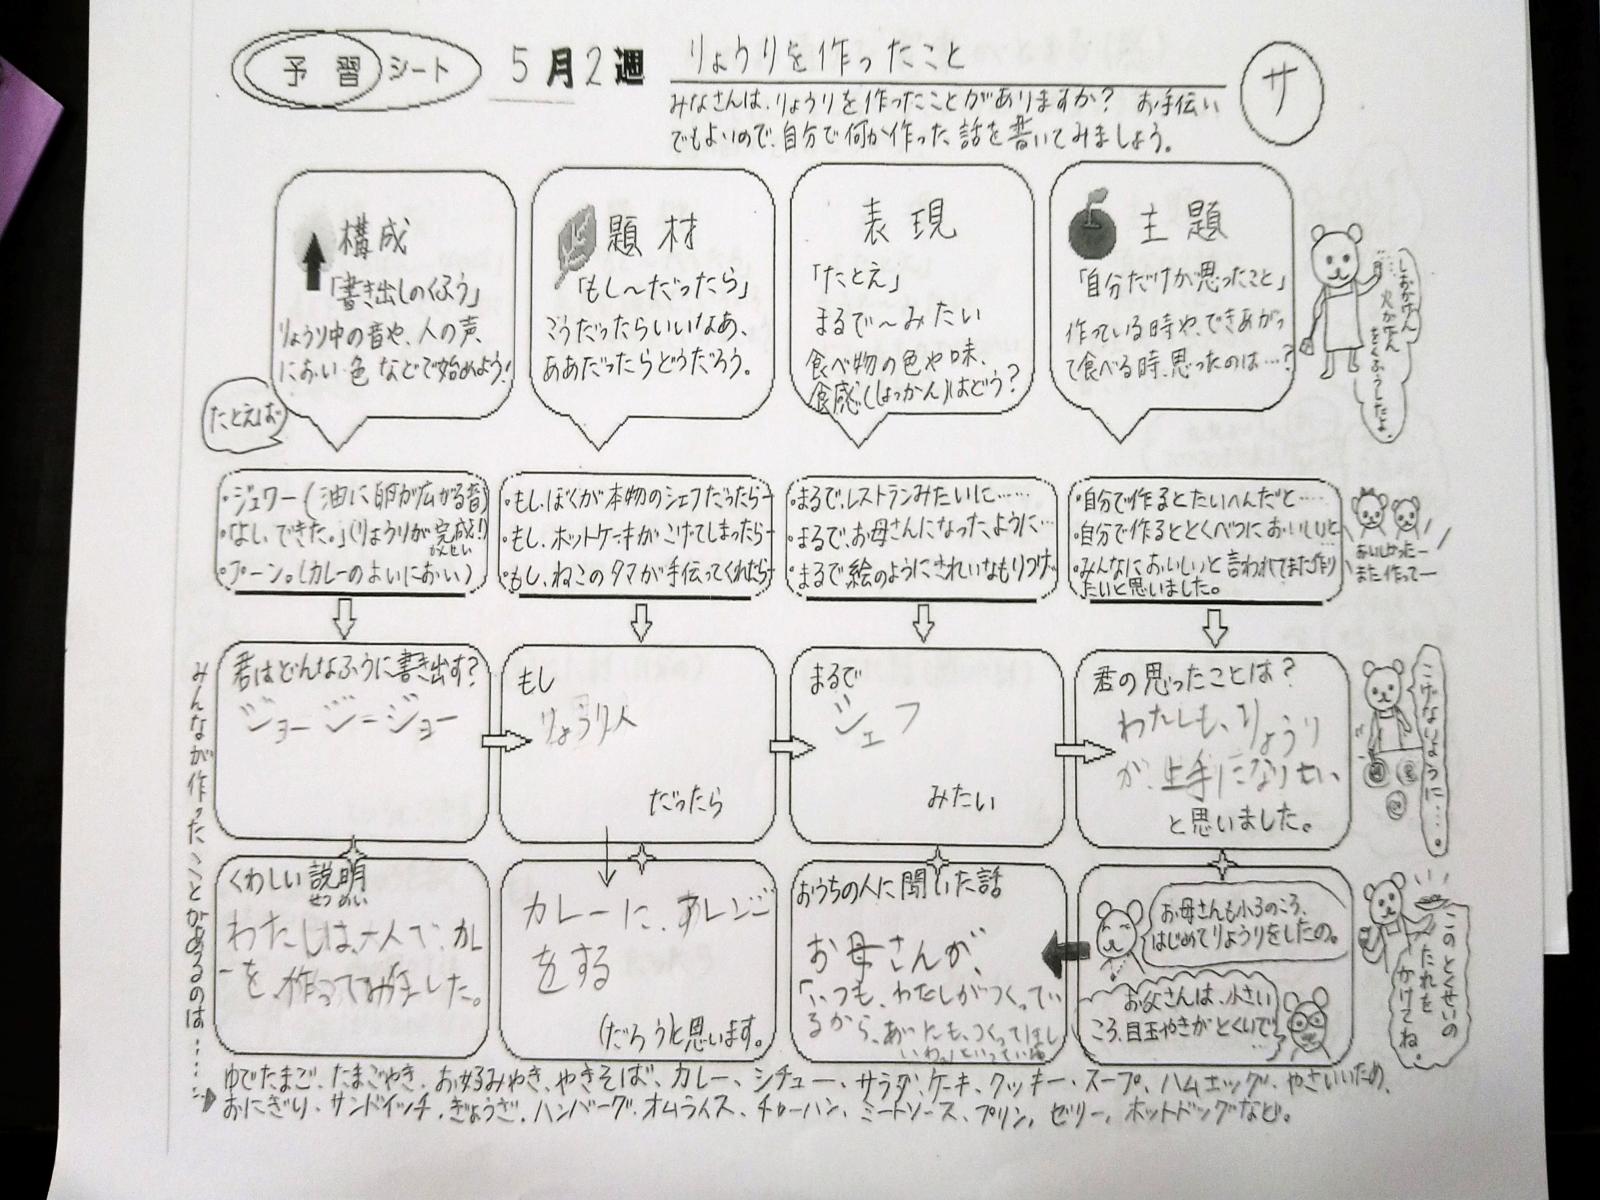 予習シート
5月2週
りょうりを作ったこと
サ
みなさんは、りょうりを作ったことがありますか？ お手伝い
でもよいので、自分で何か作った話を書いてみましょう。
構成
「書き出しのくふう」
りょうり中の音や、人の声、
におい・色などで始めよう！
題材
「もし〜だったら」
こうだったらいいなあ、
ああだったらどうだろう。
表現
「たとえ」
まるで〜みたい
食べ物の色や味、
食感(しょっかん)はどう？
主題
「自分だけが思ったこと」
作っている時や、できあがっ
て食べる時、思ったのは…？
しおかげん
火かげん
をくふうしたよ。
たとえば
・ジュワー(油に卵が広がる音)
・「よし、できた。」(りょうりが完成！)
かんせい
・プーン。(カレーのよいにおい)
・もし、ぼくが本物のシェフだったら−
・もし、ホットケーキがこげてしまったら−
・もし、ねこのタマが手伝ってくれたら−
・まるで、レストランみたいに……
・まるで、お母さんになった、ように…
・まるで絵のようにきれいなもりつけ
・自分で作るとたいへんだと……
・自分で作るととくべつにおいしいと
・みんなにおいしいと言われてまた作り
たいと思いました。
おいしかったー
また作ってー
みんなが作ったことがあるのは……
君はどんなふうに書き出す？
ジョージージョー
もし
りょうり人
だったら
まるで
シェフ
みたい
君の思ったことは？
わたしも、りょうり
が、上手になりたい
と思いました。
こげないように…。
くわしい説明
せつめい
わたしは、一人で、カレ
ーを、作ってみました。
カレーに、あレンジ
をする
(だろう)と思います。
おうちの人に聞いた話
お母さんが、
「いつも、わたしがつくってい
るから、あなたも、つくってほし
いわ。」といっていた
お母さんも小3のころ、
はじめてりょうりをしたの。
お父さんは、小さい
ころ、目玉やきがとくいで…
このとくせいの
たれを
かけてね。
ゆでたまご、たまごやき、お好みやき、やきそば、カレー、シチュー、サラダ、ケーキ、クッキー、スープ、ハムエッグ、やさいいため、
おにぎり、サンドイッチ、ぎょうざ、ハンバーグ、オムライス、チャーハン、ミートソース、プリン、ゼリー、ホットドッグなど。